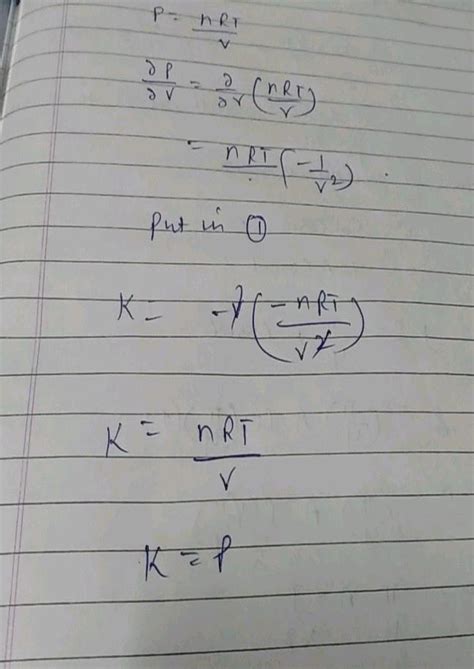 P = nRT/V
∂P/∂V = ∂/∂V (nRT/V)
= nRT (-1/V²)
Put in ①
K = -V (-nRT/V²)
K = nRT/V
K = P